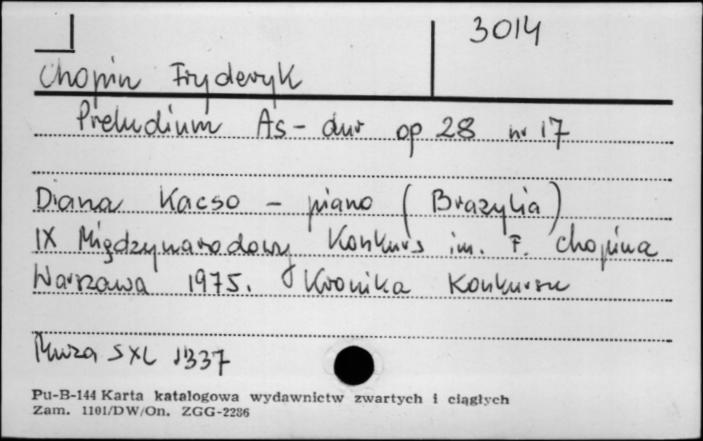 3014
Chopin Fryderyk
Preludium As-dur op 28 nr 17
Diana Kacso - piano (Brazylia)
IX Międzynarodowy Konkurs im. F. Chopina
Warszawa 1975. Kronika Konkursu
Muza SXL 1337
Pu-B-144 Karta katalogowa wydawnictw zwartych i ciągłych
Zam. 1101/DW/On. ZGG-2286